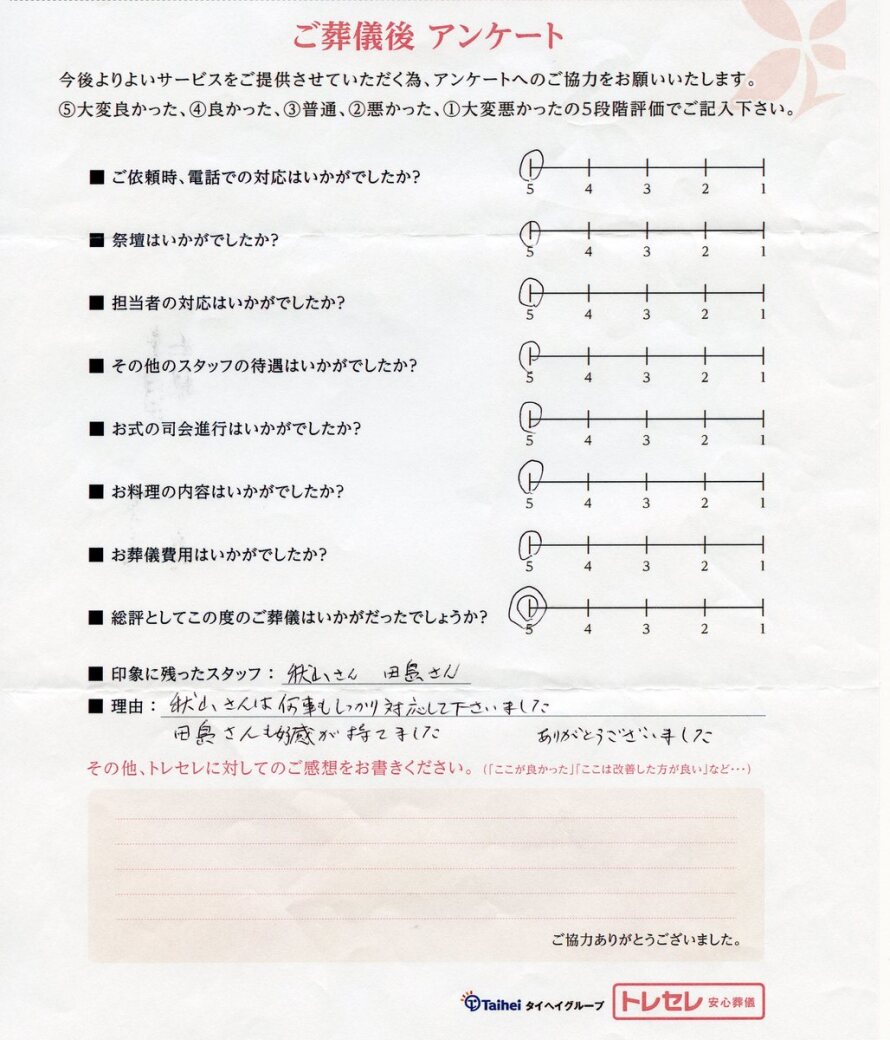 ご葬儀後 アンケート
今後よりよいサービスをご提供させていただく為、アンケートへのご協力をお願いいたします。
⑤大変良かった、④良かった、③普通、②悪かった、①大変悪かったの5段階評価でご記入下さい。
■ ご依頼時、電話での対応はいかがでしたか?
5 4 3 2 1
■ 祭壇はいかがでしたか?
5 4 3 2 1
■ 担当者の対応はいかがでしたか?
5 4 3 2 1
■ その他のスタッフの待遇はいかがでしたか?
5 4 3 2 1
■ お式の司会進行はいかがでしたか?
5 4 3 2 1
■ お料理の内容はいかがでしたか?
5 4 3 2 1
■ お葬儀費用はいかがでしたか?
5 4 3 2 1
■ 総評としてこの度のご葬儀はいかがだったでしょうか?
5 4 3 2 1
■ 印象に残ったスタッフ： 秋山さん 田島さん
■ 理由： 秋山さんは何事もしっかり対応して下さいました
田島さんも好感が持てました ありがとうございました
その他、トレセレに対してのご感想をお書きください。(「ここが良かった」「ここは改善した方が良い」など…)
ご協力ありがとうございました。
Taihei タイヘイグループ トレセレ 安心葬儀